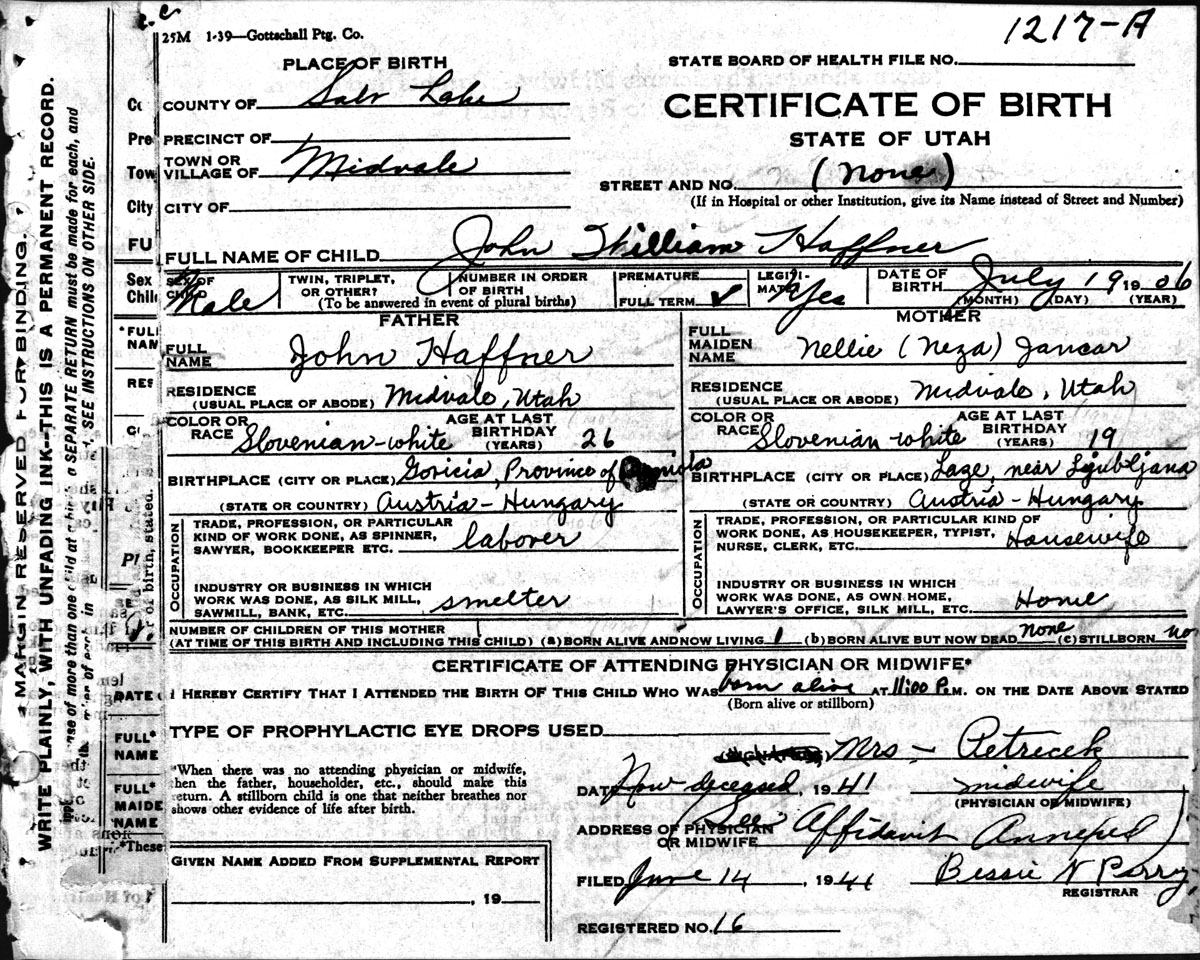 25M 1-39—Gottschall Ptg. Co.
1217-A
PLACE OF BIRTH
STATE BOARD OF HEALTH FILE NO.
COUNTY OF Salt Lake
CERTIFICATE OF BIRTH
PRECINCT OF
STATE OF UTAH
TOWN OR VILLAGE OF Midvale
STREET AND NO. (None)
(If in Hospital or other Institution, give its Name instead of Street and Number)
CITY OF
FULL NAME OF CHILD John William Haffner
SEX OF CHILD Male
TWIN, TRIPLET, OR OTHER?
NUMBER IN ORDER OF BIRTH
(To be answered in event of plural births)
PREMATURE
FULL TERM ✓
LEGITIMATE? Yes
DATE OF BIRTH July 19 1906
(MONTH) (DAY) (YEAR)
FATHER
FULL NAME John Haffner
RESIDENCE (USUAL PLACE OF ABODE) Midvale, Utah
COLOR OR RACE Slovenian-white
AGE AT LAST BIRTHDAY (YEARS) 26
BIRTHPLACE (CITY OR PLACE) Goricia, Province of
(STATE OR COUNTRY) Austria-Hungary
OCCUPATION
TRADE, PROFESSION, OR PARTICULAR KIND OF WORK DONE, AS SPINNER, SAWYER, BOOKKEEPER ETC. laborer
INDUSTRY OR BUSINESS IN WHICH WORK WAS DONE, AS SILK MILL, SAWMILL, BANK, ETC. smelter
MOTHER
FULL MAIDEN NAME Nellie (Neza) Jancar
RESIDENCE (USUAL PLACE OR ABODE) Midvale, Utah
COLOR OR RACE Slovenian-white
AGE AT LAST BIRTHDAY (YEARS) 19
BIRTHPLACE (CITY OR PLACE) Laze, near Ljubljana
(STATE OR COUNTRY) Austria-Hungary
OCCUPATION
TRADE, PROFESSION, OR PARTICULAR KIND OF WORK DONE, AS HOUSEKEEPER, TYPIST, NURSE, CLERK, ETC. Housewife
INDUSTRY OR BUSINESS IN WHICH WORK WAS DONE, AS OWN HOME, LAWYER'S OFFICE, SILK MILL, ETC. Home
NUMBER OF CHILDREN OF THIS MOTHER
(AT TIME OF THIS BIRTH AND INCLUDING THIS CHILD) (a) BORN ALIVE AND NOW LIVING 1 (b) BORN ALIVE BUT NOW DEAD none (c) STILLBORN no
CERTIFICATE OF ATTENDING PHYSICIAN OR MIDWIFE*
I HEREBY CERTIFY THAT I ATTENDED THE BIRTH OF THIS CHILD WHO WAS born alive AT 11:00 P.M. ON THE DATE ABOVE STATED
(Born alive or stillborn)
TYPE OF PROPHYLACTIC EYE DROPS USED
Mrs - Petrecek
*When there was no attending physician or midwife,
then the father, householder, etc., should make this
return. A stillborn child is one that neither breathes nor
shows other evidence of life after birth.
DATE Now deceased, 1941
midwife
(PHYSICIAN OR MIDWIFE)
ADDRESS OF PHYSICIAN OR MIDWIFE (See Affidavit Annexed)
GIVEN NAME ADDED FROM SUPPLEMENTAL REPORT
, 19
FILED June 14, 1941 Bessie N Parry
REGISTRAR
REGISTERED NO. 16
MARGIN RESERVED FOR BINDING.
WRITE PLAINLY, WITH UNFADING INK—THIS IS A PERMANENT RECORD.
SEPARATE RETURN must be made for each, and
SEE INSTRUCTIONS ON OTHER SIDE.
of birth, stated.
Pre
Tow
City
FU
Sex
Chil
*FULL
NAM
DATE
FULL*
NAME
FULL*
MAIDE
NAME
*These